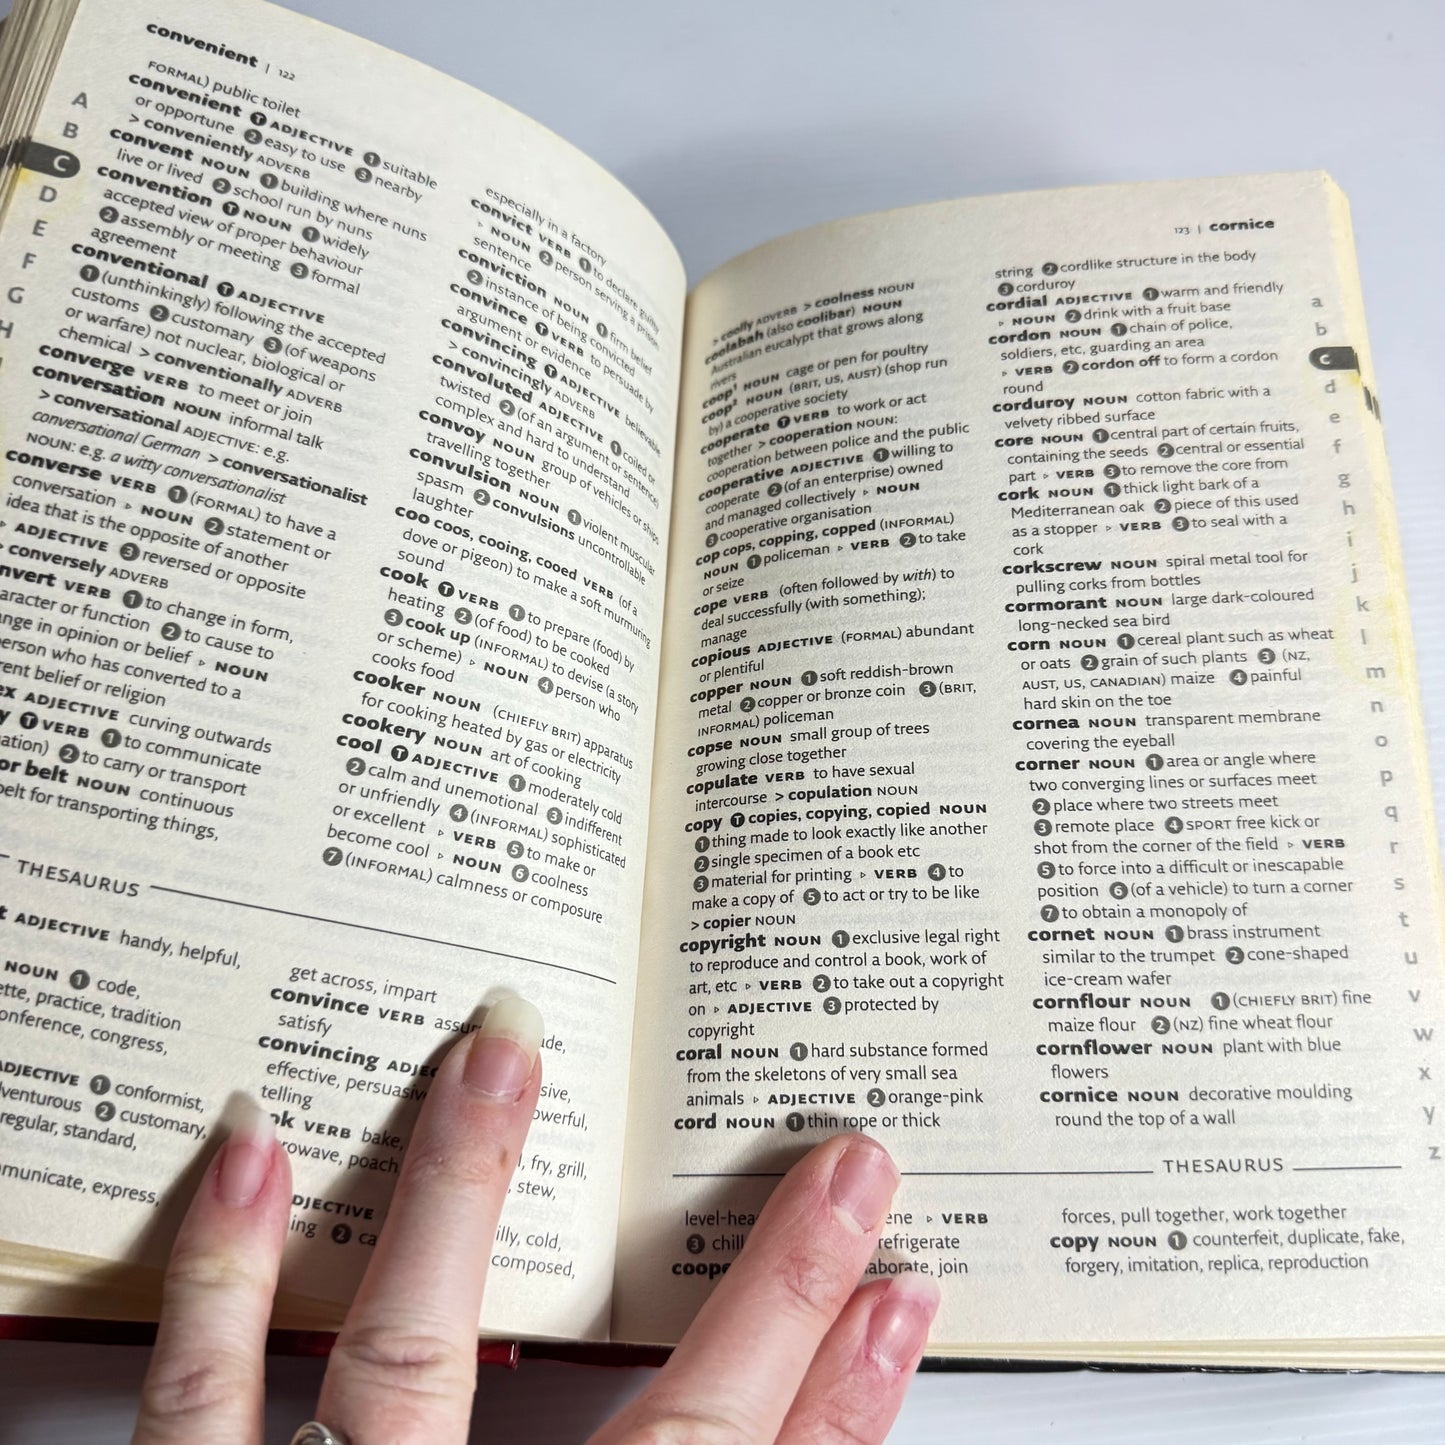 convenient | 122
FORMAL) public toilet
convenient T ADJECTIVE 1 suitable
or opportune 2 easy to use 3 nearby
> conveniently ADVERB
convent NOUN 1 building where nuns
live or lived 2 school run by nuns
convention T NOUN 1 widely
accepted view of proper behaviour
2 assembly or meeting 3 formal
agreement
conventional T ADJECTIVE
1 (unthinkingly) following the accepted
customs 2 customary 3 (of weapons
or warfare) not nuclear, biological or
chemical > conventionally ADVERB
converge VERB to meet or join
conversation NOUN informal talk
> conversational ADJECTIVE: e.g.
conversational German > conversationalist
NOUN: e.g. a witty conversationalist
converse VERB 1 (FORMAL) to have a
conversation ▹ NOUN 2 statement or
idea that is the opposite of another
▹ ADJECTIVE 3 reversed or opposite
> conversely ADVERB
VERB 1 to change in form,
or function 2 to cause to
in opinion or belief ▹ NOUN
who has converted to a
belief or religion
ADJECTIVE curving outwards
T VERB 1 to communicate
2 to carry or transport
belt NOUN continuous
belt for transporting things,
especially in a factory
convict VERB 1 to declare guilty
▹ NOUN 2 person serving a prison
sentence
conviction NOUN 1 firm belief
2 instance of being convicted
convince T VERB to persuade by
argument or evidence
convincing T ADJECTIVE believable
> convincingly ADVERB
convoluted ADJECTIVE 1 coiled or
twisted 2 (of an argument or sentence)
complex and hard to understand
convoy NOUN group of vehicles or ships
travelling together
convulsion NOUN 1 violent muscular
spasm 2 convulsions uncontrollable
laughter
coo coos, cooing, cooed VERB (of a
dove or pigeon) to make a soft murmuring
sound
cook T VERB 1 to prepare (food) by
heating 2 (of food) to be cooked
3 cook up (INFORMAL) to devise (a story
or scheme) ▹ NOUN 4 person who
cooks food
cooker NOUN (CHIEFLY BRIT) apparatus
for cooking heated by gas or electricity
cookery NOUN art of cooking
cool T ADJECTIVE 1 moderately cold
2 calm and unemotional 3 indifferent
or unfriendly 4 (INFORMAL) sophisticated
or excellent ▹ VERB 5 to make or
become cool ▹ NOUN 6 coolness
7 (INFORMAL) calmness or composure
THESAURUS
ADJECTIVE handy, helpful,
NOUN 1 code,
practice, tradition
conference, congress,
ADJECTIVE 1 conformist,
2 customary,
regular, standard,
express,
get across, impart
convince VERB
satisfy
convincing
effective,
telling
VERB bake,
poach
fry, grill,
stew,
ADJECTIVE
2
cold,
composed,
A
B
C
D
E
F
G
H
123 | cornice
> coolly ADVERB > coolness NOUN
coolabah (also coolibar) NOUN
Australian eucalypt that grows along
rivers
coop¹ NOUN cage or pen for poultry
coop² NOUN (BRIT, US, AUST) (shop run
by) a cooperative society
cooperate T VERB to work or act
together > cooperation NOUN:
cooperation between police and the public
cooperative ADJECTIVE 1 willing to
cooperate 2 (of an enterprise) owned
and managed collectively ▹ NOUN
3 cooperative organisation
cop cops, copping, copped (INFORMAL)
NOUN 1 policeman ▹ VERB 2 to take
or seize
cope VERB (often followed by with) to
deal successfully (with something);
manage
copious ADJECTIVE (FORMAL) abundant
or plentiful
copper NOUN 1 soft reddish-brown
metal 2 copper or bronze coin 3 (BRIT,
INFORMAL) policeman
copse NOUN small group of trees
growing close together
copulate VERB to have sexual
intercourse > copulation NOUN
copy T copies, copying, copied NOUN
1 thing made to look exactly like another
2 single specimen of a book etc
3 material for printing ▹ VERB 4 to
make a copy of 5 to act or try to be like
> copier NOUN
copyright NOUN 1 exclusive legal right
to reproduce and control a book, work of
art, etc ▹ VERB 2 to take out a copyright
on ▹ ADJECTIVE 3 protected by
copyright
coral NOUN 1 hard substance formed
from the skeletons of very small sea
animals ▹ ADJECTIVE 2 orange-pink
cord NOUN 1 thin rope or thick
string 2 cordlike structure in the body
3 corduroy
cordial ADJECTIVE 1 warm and friendly
▹ NOUN 2 drink with a fruit base
cordon NOUN 1 chain of police,
soldiers, etc, guarding an area
▹ VERB 2 cordon off to form a cordon
round
corduroy NOUN cotton fabric with a
velvety ribbed surface
core NOUN 1 central part of certain fruits,
containing the seeds 2 central or essential
part ▹ VERB 3 to remove the core from
cork NOUN 1 thick light bark of a
Mediterranean oak 2 piece of this used
as a stopper ▹ VERB 3 to seal with a
cork
corkscrew NOUN spiral metal tool for
pulling corks from bottles
cormorant NOUN large dark-coloured
long-necked sea bird
corn NOUN 1 cereal plant such as wheat
or oats 2 grain of such plants 3 (NZ,
AUST, US, CANADIAN) maize 4 painful
hard skin on the toe
cornea NOUN transparent membrane
covering the eyeball
corner NOUN 1 area or angle where
two converging lines or surfaces meet
2 place where two streets meet
3 remote place 4 SPORT free kick or
shot from the corner of the field ▹ VERB
5 to force into a difficult or inescapable
position 6 (of a vehicle) to turn a corner
7 to obtain a monopoly of
cornet NOUN 1 brass instrument
similar to the trumpet 2 cone-shaped
ice-cream wafer
cornflour NOUN 1 (CHIEFLY BRIT) fine
maize flour 2 (NZ) fine wheat flour
cornflower NOUN plant with blue
flowers
cornice NOUN decorative moulding
round the top of a wall
THESAURUS
▹ VERB
3 refrigerate
join
forces, pull together, work together
copy NOUN 1 counterfeit, duplicate, fake,
forgery, imitation, replica, reproduction
a
b
c
d
e
f
g
h
i
j
k
l
m
n
o
p
q
r
s
t
u
v
w
x
y
z